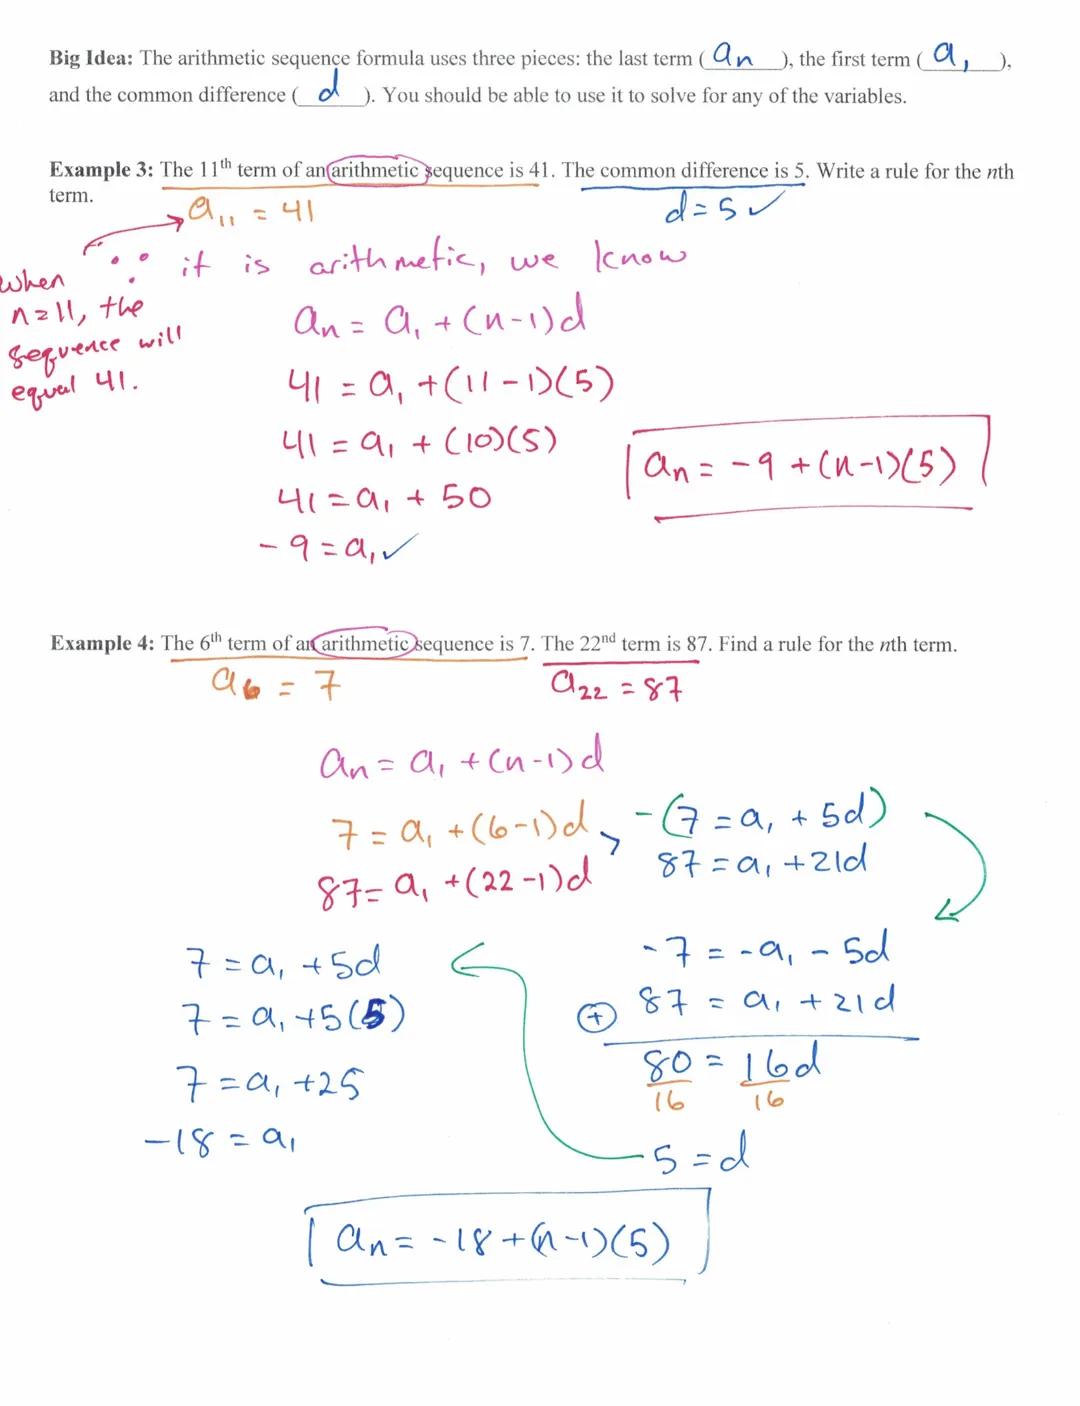 Big Idea: The arithmetic sequence formula uses three pieces: the last term ( aₙ ), the first term ( a₁ ),
and the common difference ( d ). You should be able to use it to solve for any of the variables.
Example 3: The 11th term of an arithmetic sequence is 41. The common difference is 5. Write a rule for the nth
term.
a₁₁ = 41
d = 5 ✓
∵ it is arithmetic, we know
when
n=11, the
sequence will
equal 41.
aₙ = a₁ + (n-1)d
41 = a₁ + (11-1)(5)
41 = a₁ + (10)(5)
41 = a₁ + 50
-9 = a₁ ✓
aₙ = -9 + (n-1)(5)
Example 4: The 6th term of an arithmetic sequence is 7. The 22nd term is 87. Find a rule for the nth term.
a₆ = 7
a₂₂ = 87
aₙ = a₁ + (n-1)d
7 = a₁ + (6-1)d
87 = a₁ + (22-1)d
-(7 = a₁ + 5d)
87 = a₁ + 21d
-7 = -a₁ - 5d
⊕ 87 = a₁ + 21d
80 = 16d
16 16
5 = d
7 = a₁ + 5d
7 = a₁ + 5(5)
7 = a₁ + 25
-18 = a₁
aₙ = -18 + (n-1)(5)